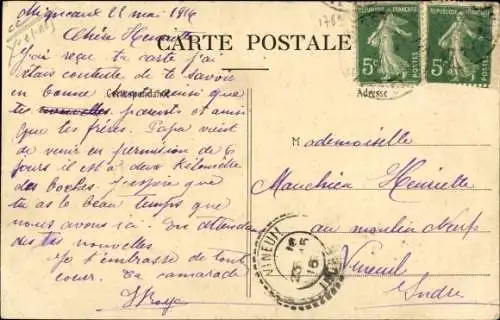 Migneaux 22 mai 1916
Chère Henriette
CARTE POSTALE
J'ai reçu ta carte j'ai
étais contente de te savoir
en bonne santé ainsi que
tes nouvelles parents et amis
que tes frères. Papa vient
de venir en permission de 6
jours il est à deux kilomètre
des boches. J'espère que
tu as le beau temps que
nous avons ici. En attendant
des tes nouvelles
Je t'embrasse de tout
coeur. Ta camarade
Correspondance
RÉPUBLIQUE FRANÇAISE
5c
POSTES
RÉPUBLIQUE FRANÇAISE
5c
POSTES
Adresse
Mademoiselle
Henriette
au moulin Neuf
Vineuil
Indre
VINEUIL
INDRE